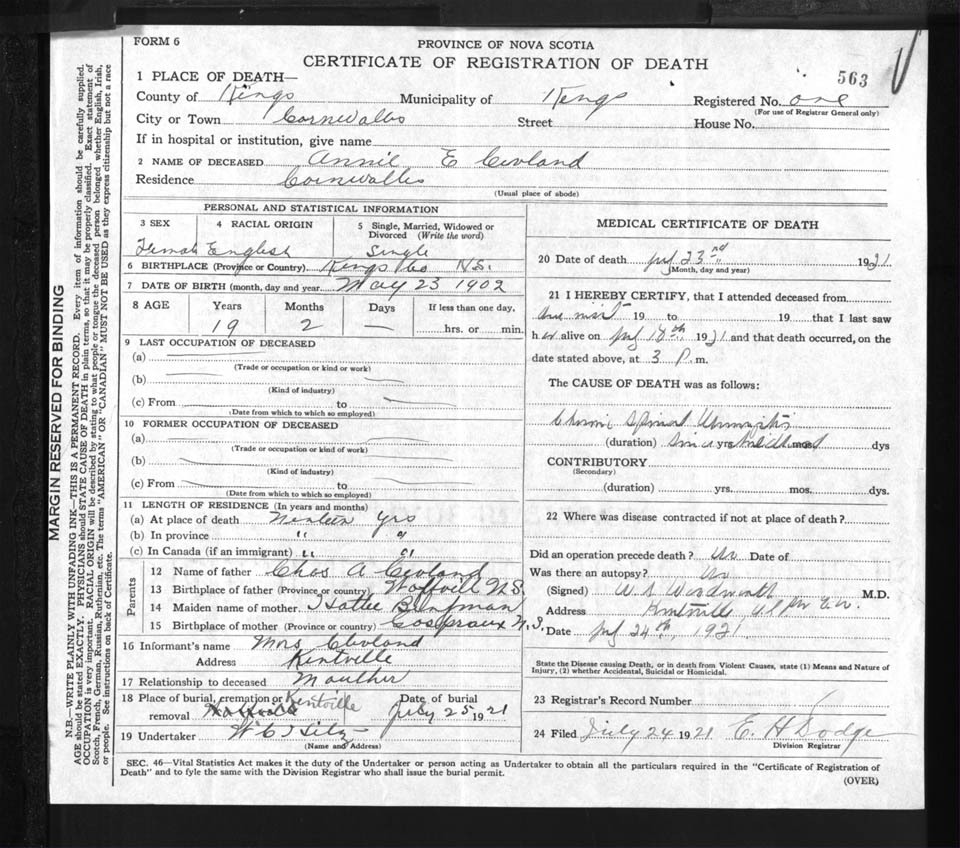 FORM 6
PROVINCE OF NOVA SCOTIA
CERTIFICATE OF REGISTRATION OF DEATH
563
1 PLACE OF DEATH—
County of Kings Municipality of Kings Registered No. one
(For use of Registrar General only)
City or Town Cornwallis Street House No.
If in hospital or institution, give name
2 NAME OF DECEASED Annie E
Residence Cornwallis
(Usual place of abode)
PERSONAL AND STATISTICAL INFORMATION
3 SEX 4 RACIAL ORIGIN 5 Single, Married, Widowed or Divorced (Write the word)
Female English Single
6 BIRTHPLACE (Province or Country) Kings Co N.S.
7 DATE OF BIRTH (month, day and year May 23 1902
8 AGE Years Months Days If less than one day,
19 2 — hrs. or min.
9 LAST OCCUPATION OF DECEASED
(a)
(Trade or occupation or kind or work)
(b)
(Kind of industry)
(c) From to
(Date from which to which so employed)
10 FORMER OCCUPATION OF DECEASED
(a)
(Trade or occupation or kind of work)
(b)
(Kind of industry)
(c) From to
(Date from which to which so employed)
11 LENGTH OF RESIDENCE (In years and months)
(a) At place of death yrs
(b) In province " "
(c) In Canada (if an immigrant) " "
Parents
12 Name of father Chas A
13 Birthplace of father (Province or country) N.S.
14 Maiden name of mother Hattie
15 Birthplace of mother (Province or country) N.S.
16 Informant's name Mrs
Address Kentville
17 Relationship to deceased Mouther
18 Place of burial, cremation or removal Kentville Date of burial July 25 1921
19 Undertaker
(Name and Address)
MEDICAL CERTIFICATE OF DEATH
20 Date of death July 23rd 1921
(Month, day and year)
21 I HEREBY CERTIFY, that I attended deceased from
19 to 19 that I last saw
her alive on July 18th 1921 and that death occurred, on the
date stated above, at 3 P. m.
The CAUSE OF DEATH was as follows:
Spinal
(duration) since yrs. mos. dys
CONTRIBUTORY
(Secondary)
(duration) yrs. mos. dys.
22 Where was disease contracted if not at place of death?
Did an operation precede death? no Date of
Was there an autopsy? no
(Signed) W S M.D.
Address Kentville
Date July 24th 1921
State the Disease causing Death, or in death from Violent Causes, state (1) Means and Nature of
Injury, (2) whether Accidental, Suicidal or Homicidal.
23 Registrar's Record Number
24 Filed July 24 1921 E. H Dodge
Division Registrar
SEC. 46—Vital Statistics Act makes it the duty of the Undertaker or person acting as Undertaker to obtain all the particulars required in the "Certificate of Registration of
Death" and to fyle the same with the Division Registrar who shall issue the burial permit.
(OVER)
MARGIN RESERVED FOR BINDING
N.B.—WRITE PLAINLY WITH UNFADING INK—THIS IS A PERMANENT RECORD. Every item of information should be carefully supplied.
AGE should be stated EXACTLY. PHYSICIANS should STATE CAUSE OF DEATH in plain terms, so that it may be properly classified. Exact statement of
OCCUPATION is very important. RACIAL ORIGIN will be described by stating to what people or tongue the deceased person belonged whether English, Irish,
Scotch, French, German, Russian, Ruthenian, etc. The terms "AMERICAN" OR "CANADIAN" MUST NOT BE USED as they express citizenship but not a race
or people. See instructions on back of Certificate.